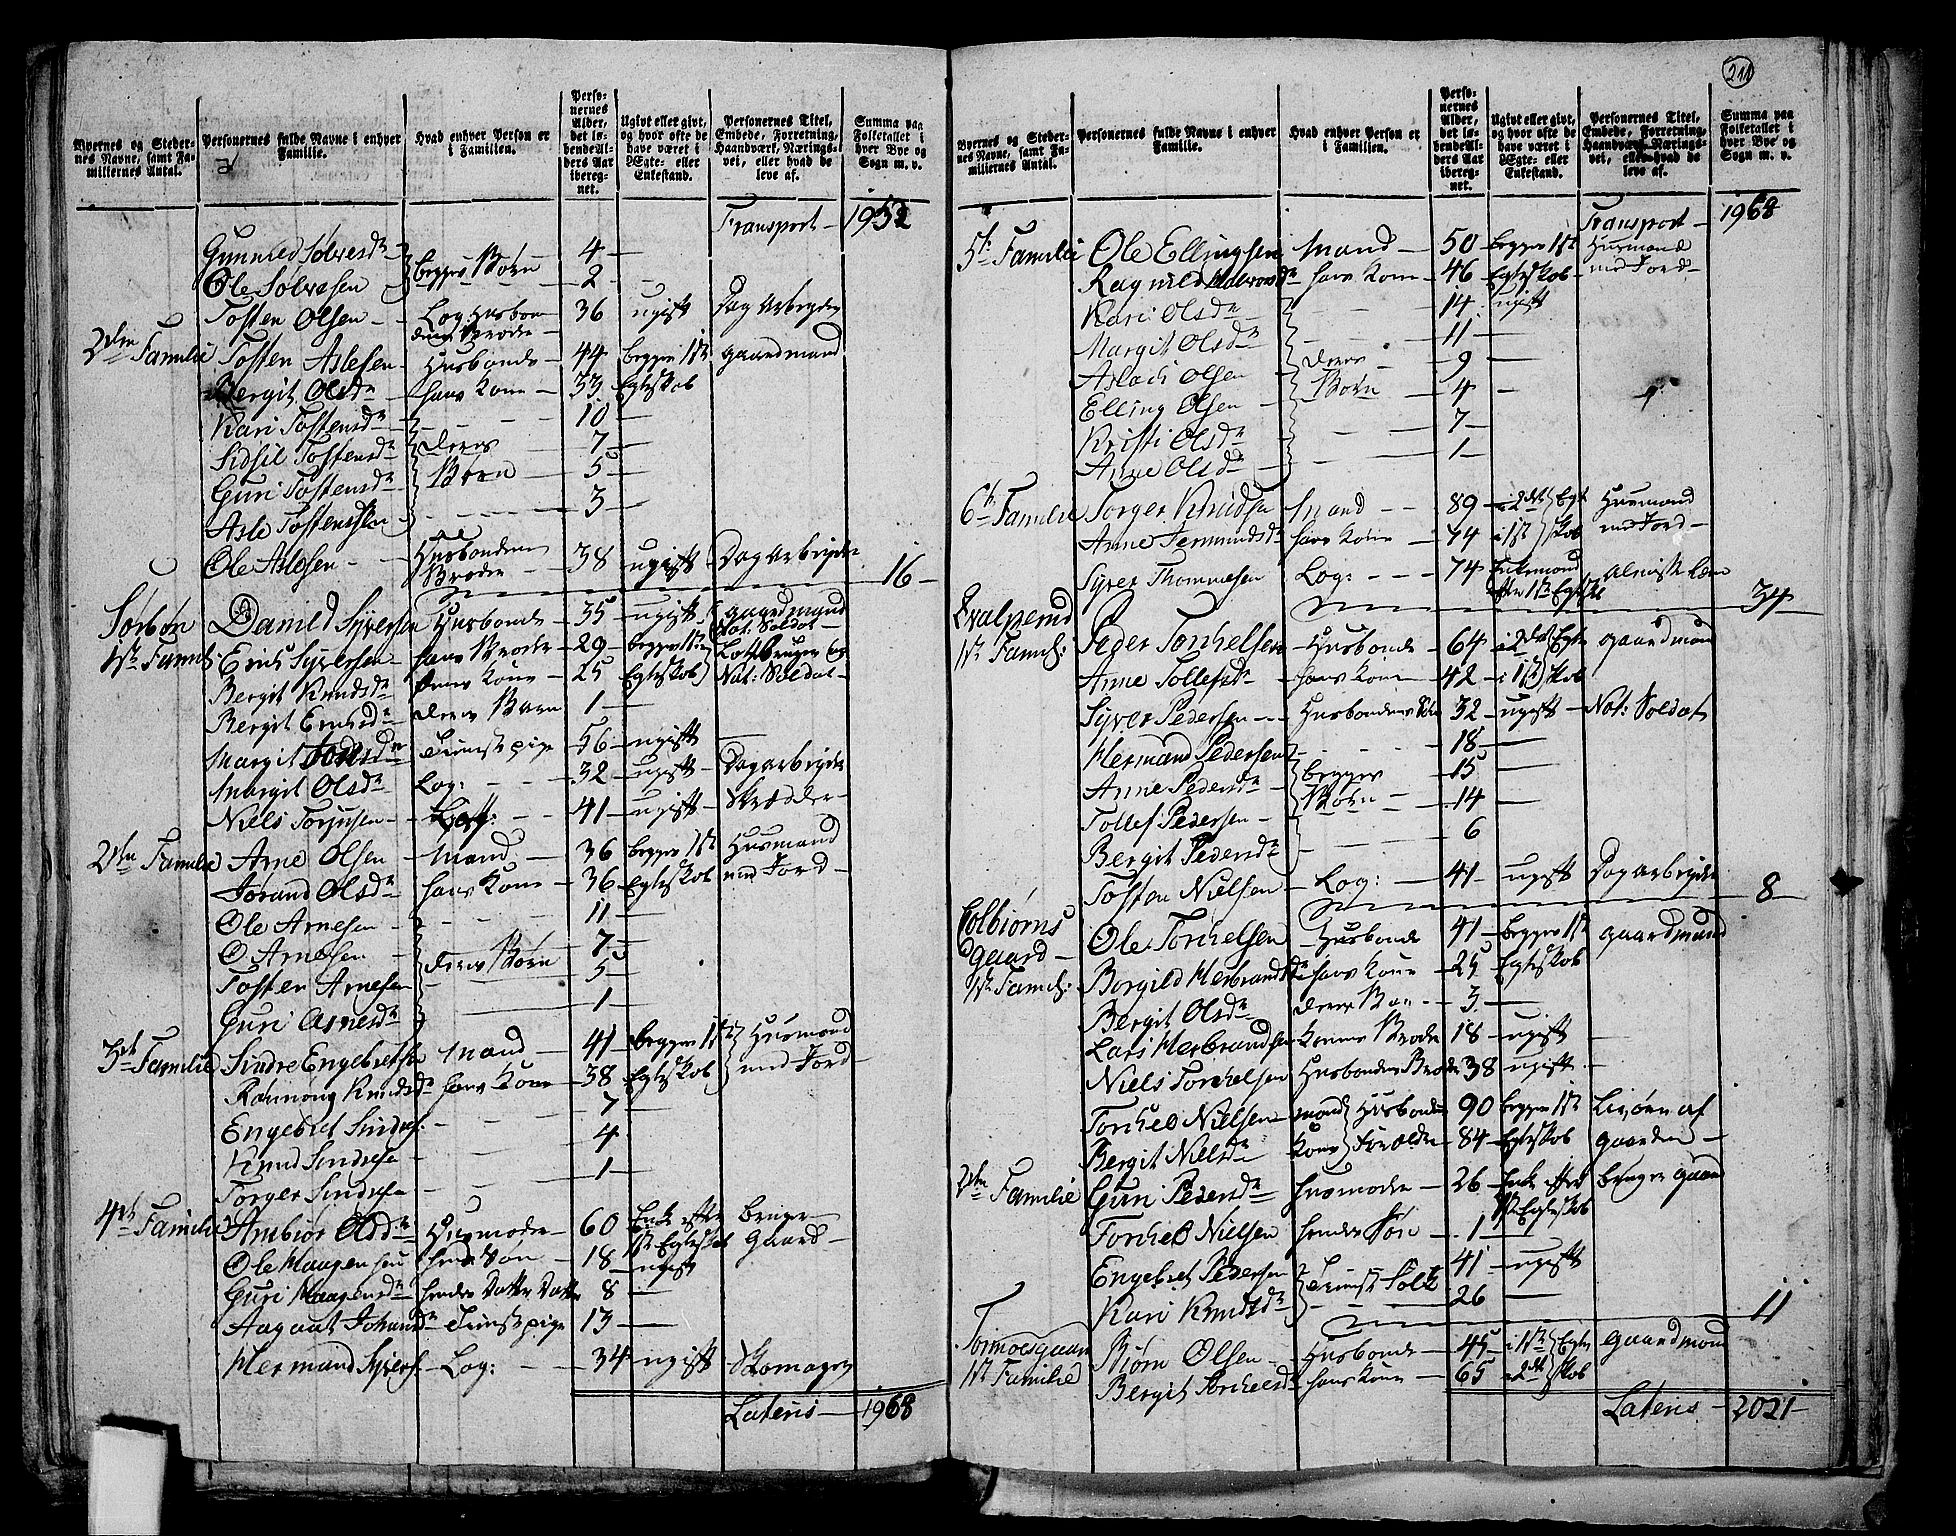 211
Byernes og Stedernes Navne, samt Familiernes Antal.
Personernes fulde Navne i enhver Familie.
Hvad enhver Person er i Familien.
Personernes Alder, det løbendeAlders Aar iberegnet.
Ugivt eller givt, og hvor ofte de have været i Ægte- eller Enkestand.
Personernes Titel, Embede, Forretning, Haandværk, Næringsvei, eller hvad de leve af.
Summa paa Folketallet i hver Bye og Sogn m. v.
Transport 1952
Gunnild Solvesdr 4
begges Børn
Ole Solvesen 2
Tosten Olsen Log Husbon 36 ugift Dag Arbeyder
Broder
2den Familie Tosten Aslesen Husbonde 44 begge 1ste gaardmand
Bergit Olsdr hans Kone 33 Egteskob
Kari Tostensdr 10
Sidsil Tostensdr deres 7
Guri Tostensdr Børn 5
Asle Tostensen 3
Ole Aslesen Husbondens Broder 38 ugift Dag Arbeyder
16
Sørbøn Daniel Syversen Husbonde 35 ugift gaardmand
Nat: Soldat
1ste Famili: Erich Syversen hans Broder 29 begge 1ste
Bergit Knudsdr Kone 25 Egteskob Nat: Soldat
Bergit Erichsdr deres Barn 1
Margit dr Tieniste pige 56 ugift
Margit Olsdr Log: 32 ugift Dagarbeyder
Niels Torjusen Log: 41 ugift Skrædder
2den Familie Arne Olsen Mand 36 begge 1ste Husmand
Jorand Olsdr hans Kone 36 Egteskob med Jord
Ole Arnesen 11
O Arnesen 7
Tosten Arnesen deres Børn 5
Guri Arnesdr 1
3de Familie Sindre Engebretsen Mand 41 begge 1ste Husmand
Knudsdr hans Kone 38 Egteskob med Jord
Engebret Sindres: 7
Knud Sindresen 4
Torger Sindresen 1
4de Familie Ambiør Olsdr Husmoder 60 Enke efter bruger
1ste Egteskab Gaard
Ole Haagensen hendes Søn 18 ugift
Guri Haagensdr hendes Datter Datter 8
Aagaat Johansdr Tieniste pige 13
Hermand Syvers: Log: 34 ugift Skomager
Lateris 1968
Byernes og Stedernes Navne, samt Familiernes Antal.
Personernes fulde Navne i enhver Familie.
Hvad enhver Person er i Familien.
Personernes Alder, det løbendeAlders Aar iberegnet.
Ugivt eller givt, og hvor ofte de have været i Ægte- eller Enkestand.
Personernes Titel, Embede, Forretning, Haandværk, Næringsvei, eller hvad de leve af.
Summa paa Folketallet i hver Bye og Sogn m. v.
Transport 1968
5te Familie Ole Ellingsen Mand 50 begge 1ste Husmand
Ragnild Halvorsdr hans Kone 46 Egteskob med Jord
Kari Olsdr 14 ugift
Margit Olsdr 11
Aslach Olsen deres 9
Elling Olsen Børn 4
Kristi Olsdr 7
Anne Olsdr 1
6te Familie Torger Knudsen Mand 89 i 2det Egte Husmand
Anne Termundsdr hans Kone 74 i 1ste skob med Jord
Syver Thommesen Log: 74 Enkemand Almisse Lem
efter 1ste Egtesk
34
Qvalpemd Peder Torchelsen Husbonde 64 i 2det Egte gaardmand
1ste Famili: Anne Tollefsdr hans Kone 42 i 1ste skob
Syver Pedersen Husbondens Søn 32 ugift Nat: Soldat
Hermand Pedersen 18
Anne Pedersdr begges 15
Tollef Pedersen Børn 14
Bergit Pedersdr 6
Tosten Nielsen Log: 41 ugift Dagarbeyder
8
Colbiørns Ole Torchelsen Husbonde 41 begge 1ste gaardmand
gaard Borgild Herbrandsdr hans Kone 25 Egteskob
1ste Famili: Bergit Olsdr deres Ba 3
Lars Herbrandsen Konens Broder 18 ugift
Niels Torchelsen Husbondens Broder 38 ugift
Torchel Nielsen mand Husbondens 90 begge 1ste af
Bergit Nielsdr Kone Forældre 84 Egteskob gaarden
2den Familie Guri Pedersdr Husmoder 26 Enke efter bruger gaard
1ste Egteskob
Torchel Nielsen hendes Søn 1
Engebret Pedersen Tieniste Folk 41 ugift
Kari Knudsdr 26
11
Tormoesgaard Biørn Olsen Husbonde 45 i 1ste Egte gaardmand
1ste Familie Bergit Torchelsdr hans Kone 65 2det skob
Lateris 2021